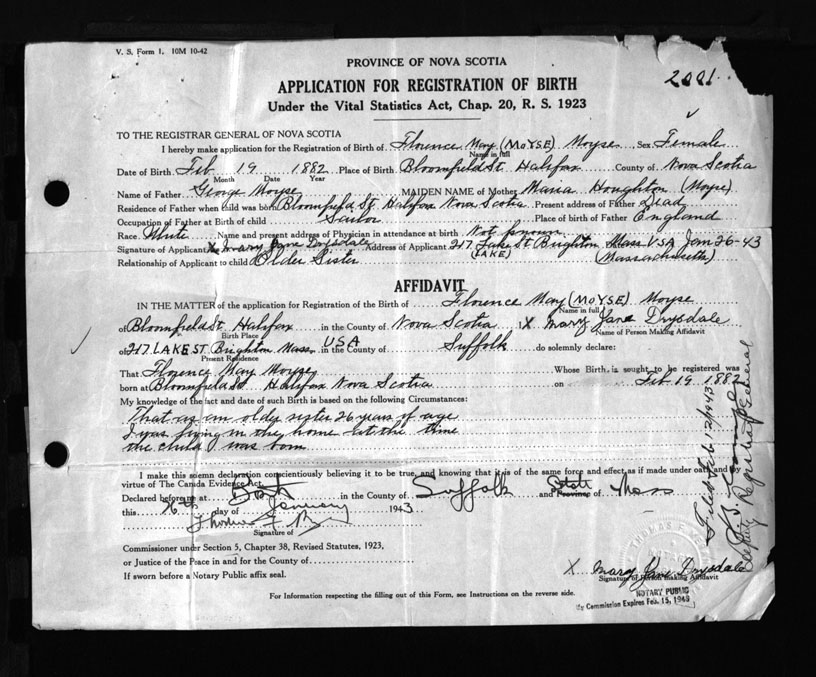 V. S. Form 1. 10M 10-42
2001
PROVINCE OF NOVA SCOTIA
APPLICATION FOR REGISTRATION OF BIRTH
Under the Vital Statistics Act, Chap. 20, R. S. 1923
TO THE REGISTRAR GENERAL OF NOVA SCOTIA
I hereby make application for the Registration of Birth of Florence May (MOYSE) Moyse Sex Female
Name in full
Date of Birth Feb 19 1882 Place of Birth Bloomfield St Halifax County of Nova Scotia
Month Date Year
Name of Father George Moyse MAIDEN NAME of Mother Maria Houghton (Moyse)
Residence of Father when child was born Bloomfield St. Halifax Nova Scotia Present address of Father Dead
Occupation of Father at Birth of child Sailor Place of birth of Father England
Race White Name and present address of Physician in attendance at birth Not known
Signature of Applicant X Mary Jane Drysdale Address of Applicant 217 Lake St Brighton Mass USA Jan 26-43
(LAKE) (Massachusetts)
Relationship of Applicant to child Older Sister
AFFIDAVIT
IN THE MATTER of the application for Registration of the Birth of Florence May (MOYSE) Moyse
Name in full
of Bloomfield St Halifax in the County of Nova Scotia I X Mary Jane Drysdale
Birth Place Name of Person Making Affidavit
of 217 LAKE ST Brighton Mass USA in the County of Suffolk do solemnly declare:
Present Residence
That Florence May Moyse Whose Birth is sought to be registered was
born at Bloomfield St Halifax Nova Scotia on Feb 19 1882
My knowledge of the fact and date of such Birth is based on the following Circumstances:
That as an older sister 26 years of age
I was living in the home at the time
the child was born
I make this solemn declaration conscientiously believing it to be true, and knowing that it is of the same force and effect as if made under oath and by
virtue of The Canada Evidence Act.
Declared before me at in the County of Suffolk and State Province of Mass
this 26th day of January 1943
Thomas F
Signature of
Commissioner under Section 5, Chapter 38, Revised Statutes, 1923,
or Justice of the Peace in and for the County of
If sworn before a Notary Public affix seal.
X Mary Jane Drysdale
Signature of Person making Affidavit
NOTARY PUBLIC
My Commission Expires Feb. 15, 1948
For Information respecting the filling out of this Form, see Instructions on the reverse side.
Filed Feb 12/1943
Deputy Registrar General